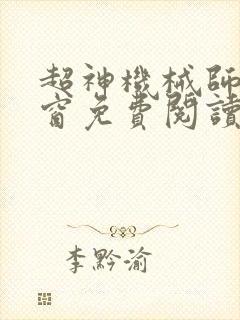 超神機械師
窗免費閱讀
李黔渝